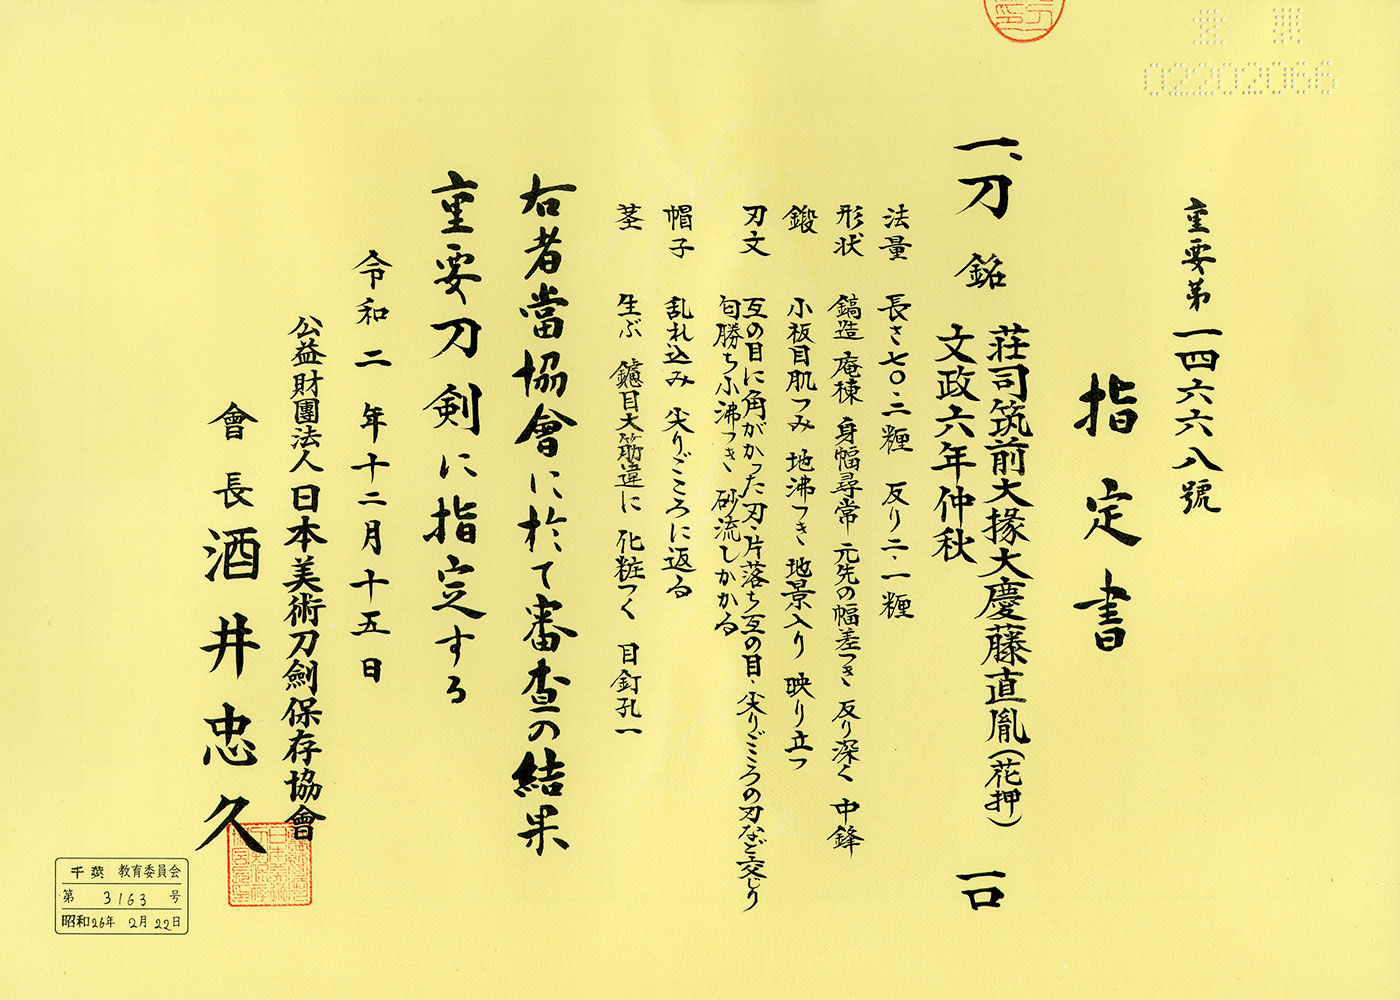 重要第一四六六八號
指定書
一、刀 銘 荘司筑前大掾大慶藤直胤(花押) 一口
文政六年仲秋
法量 長さ七〇・二糎 反り二・一糎
形状 鎬造 庵棟 身幅尋常 元先の幅差つき 反り深く 中鋒
鍛 小板目肌つみ 地沸つき 地景入り 映り立つ
刃文 互の目に角がかった刃・片落ち互の目・尖りごころの刃など交じり
匂勝ち小沸つき 砂流しかかる
帽子 乱れ込み 尖りごころに返る
茎 生ぶ 鑢目大筋違に 化粧つく 目釘孔一
右者當協會に於て審査の結果
重要刀剣に指定する
令和二年十二月十五日
公益財團法人日本美術刀劍保存協會
會長 酒井忠久
重要
02202066
千葉 教育委員会
第 3163 号
昭和26年 2月 22日